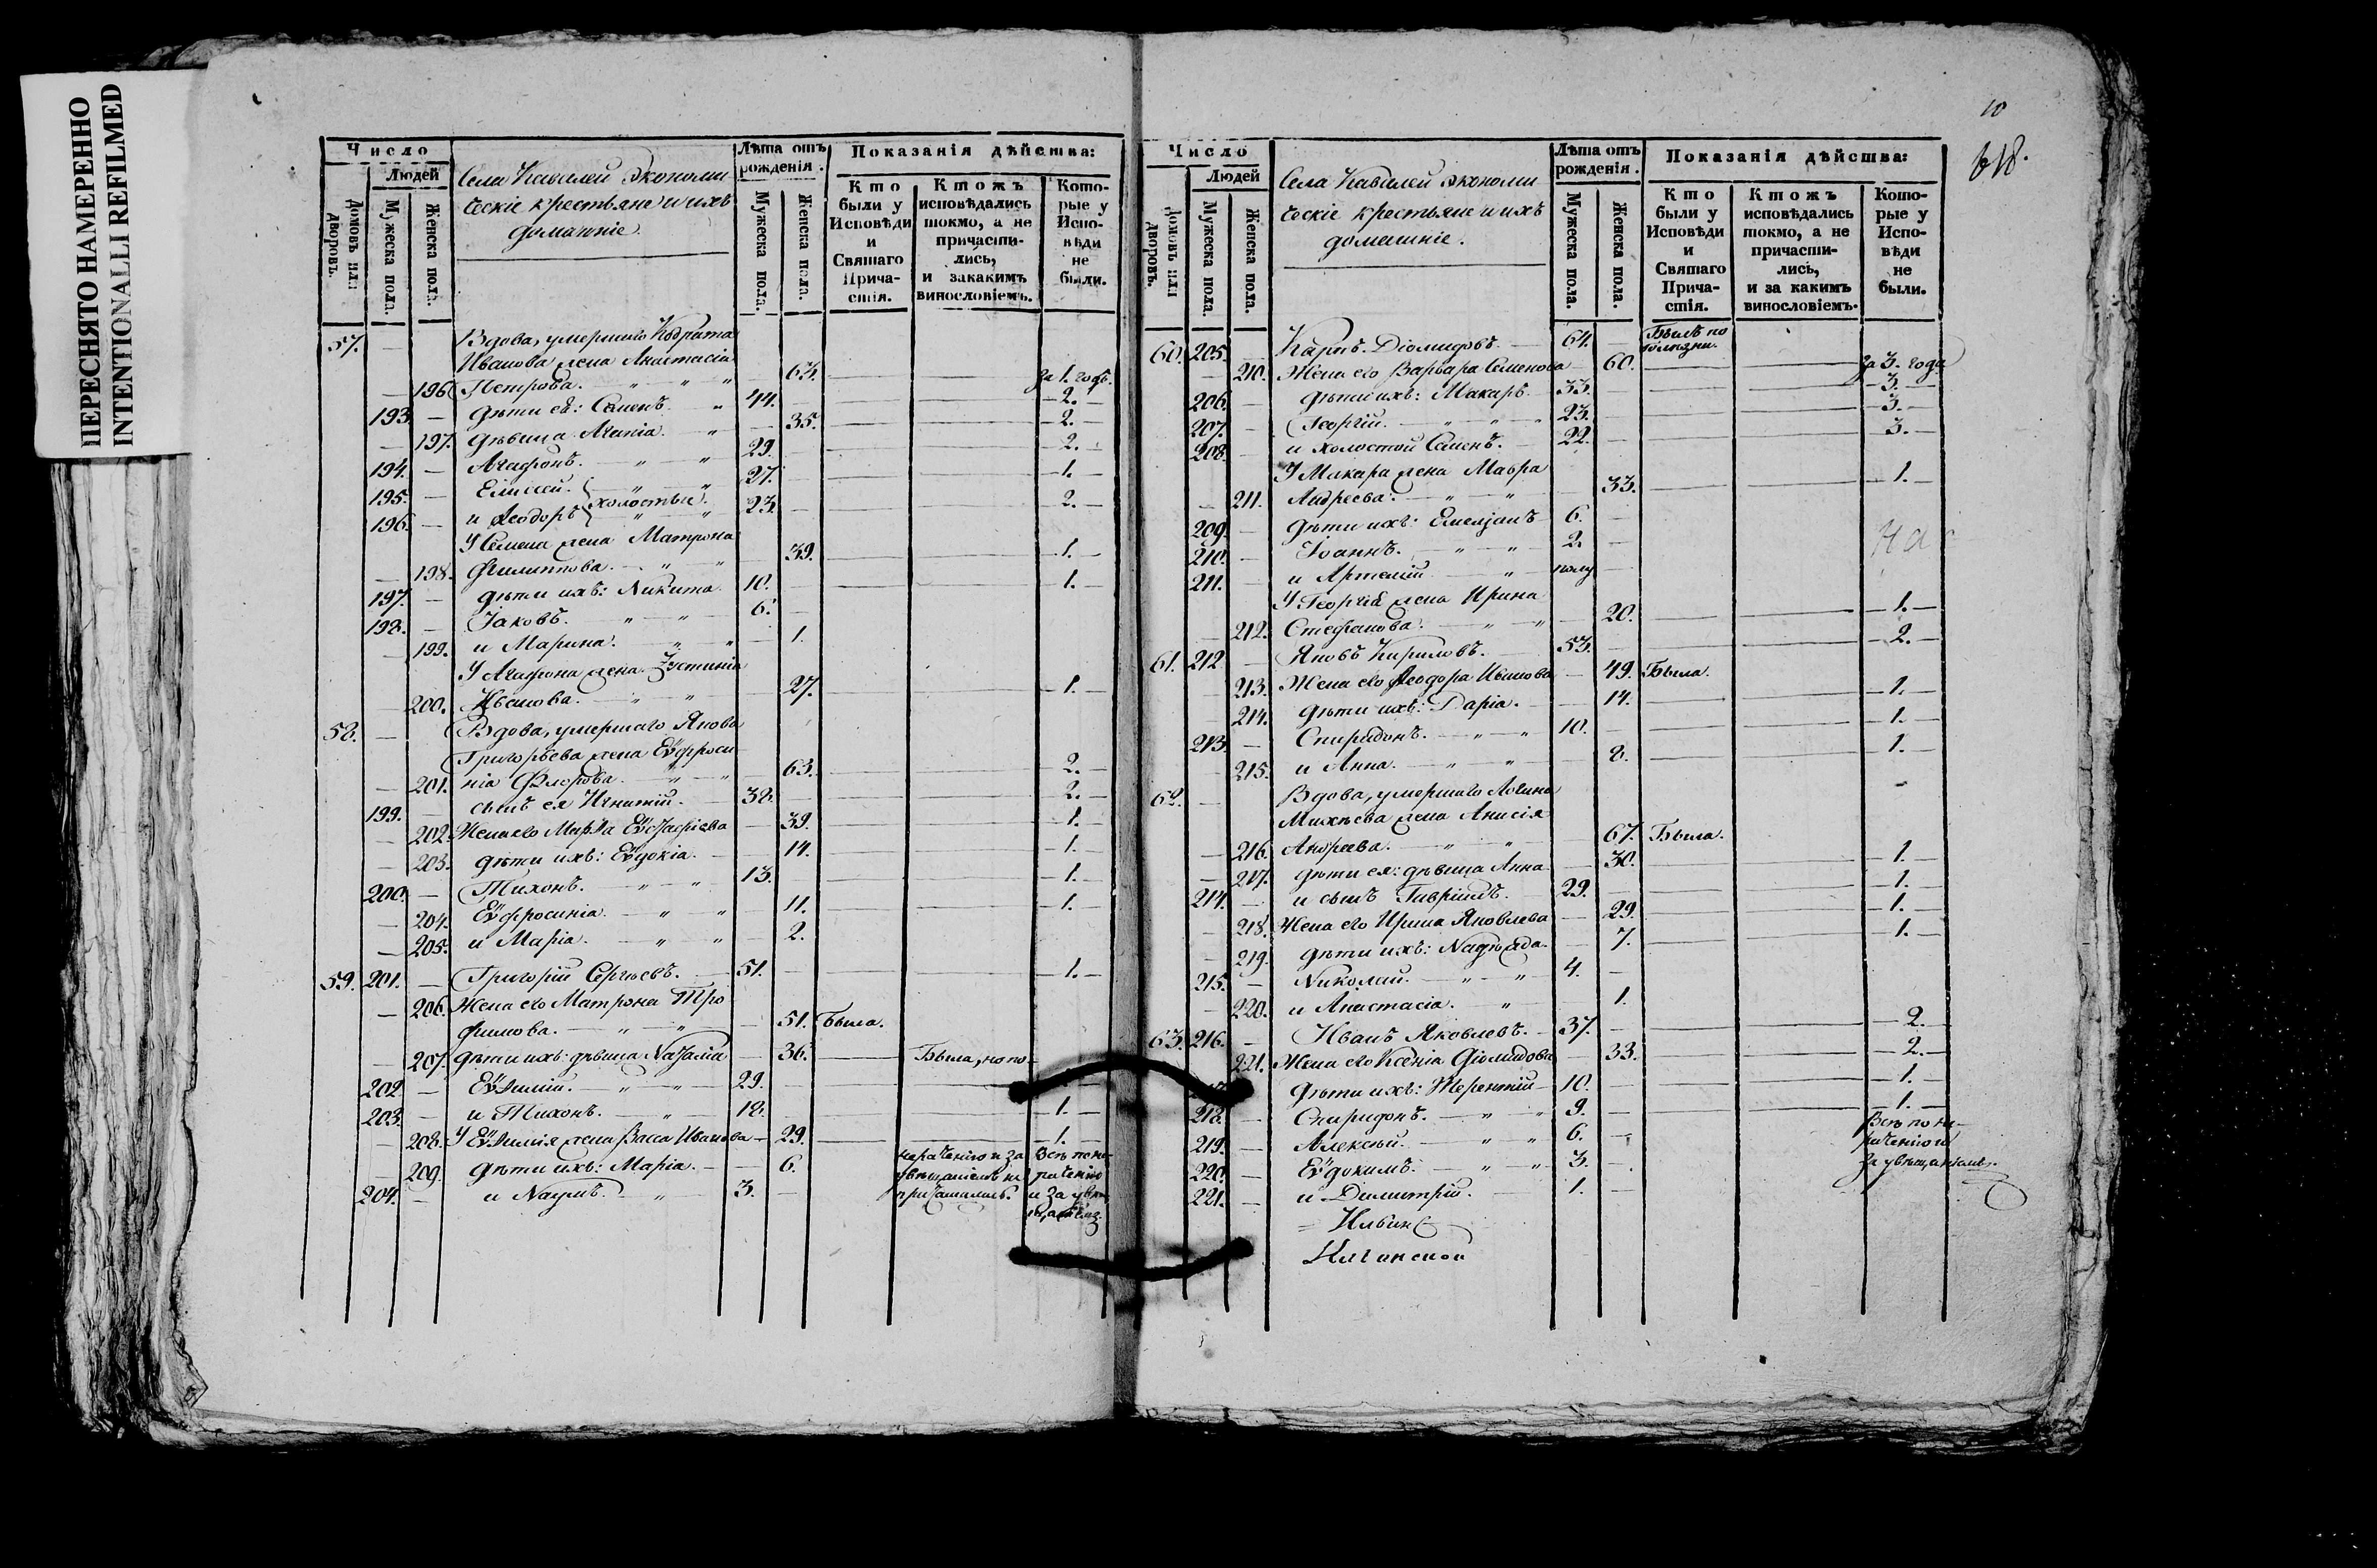 ПЕРЕСНЯТО НАМЕРЕННО
INTENTIONALLI REFILMED
Число
Людей
Домовъ или дворовъ.
Мужеска пола.
Женска пола.
Села Кавалей Экономи
ческіе крестьяне и ихъ
домашніе.
Лѣта отъ рожденія.
Мужеска пола.
Женска пола.
Показанія дѣйства:
Кто были у Исповѣди и Святаго Причастія.
Ктожъ исповѣдались токмо, а не причастились, и закакимъ винословіемъ.
Которые у Исповѣди не были.
57. — Вдова, умершаго Кодрата
Иванова жена Анастасія
— 196 Петрова. " " " 63. за 1. годъ.
193. — дѣти ея: Семенъ. " 44. 2.
— 197. дѣвица Агапіа. " 35. 2.
194. — Агафонъ. " " 29. 2.
195. — Елисей. " " 27. 1.
196. — и Ѳеодоръ холостые. " " 23. 2.
У Семена жена Матрона
— 198. Филиппова. " " 39. 1.
197. — дѣти ихъ: Никита. 10. 1.
198. — Іаковъ. " " 6. —
— 199. и Марина. " " 1.
У Агафона жена Іустинія
— 200. Иванова. " " 27. 1.
58. — Вдова, умершаго Якова
Григорьева жена Еѵфроси
— 201. нія Флорова. " " 63. 2.
199. — сынъ ея Игнатій. 38. 2.
— 202. Жена его Марѳа Еѵстафіева 39. 1.
— 203. дѣти ихъ: Еѵдокіа. 14. 1.
200. — Тихонъ. " " 13. 1.
— 204. Еѵфросиніа. " " 11. 1.
— 205. и Маріа. " " 2.
59. 201. — Григорій Сергѣевъ. 51. — 1.
— 206. Жена его Матрона Тро
фимова. " " 51. Была.
— 207. дѣти ихъ: дѣвица Наталіа 36. Была, но по
202. — Еѵѳимій. " " 29.
203. — и Тихонъ. " 18. 1.
— 208. У Еѵѳимія жена Васса Иванова 29. 1.
— 209. дѣти ихъ: Маріа. 6. нераченію и за Всѣ по не
204. — и Наумъ. " 3. — увѣщаніемъ не раченію
причащалась. и за увѣ
щаніемъ.
10
618.
Число
Людей
Домовъ или дворовъ.
Мужеска пола.
Женска пола.
Села Кавалей Экономи
ческіе крестьяне и ихъ
домашніе.
Лѣта отъ рожденія.
Мужеска пола.
Женска пола.
Показанія дѣйства:
Кто были у Исповѣди и Святаго Причастія.
Ктожъ исповѣдались токмо, а не причастились, и за какимъ винословіемъ.
Которые у Исповѣди не были.
60. 205. — Карпъ Діомидовъ. 64. Былъ по болѣзни.
— 210. Жена его Варвара Семенова 60. за 3. года
206. — дѣти ихъ: Макаръ. 33. 3.
207. — Георгій. " " " 23. 3.
208. — и холостой Семенъ. 22. 3.
У Макара жена Мавра
— 211. Андреева. " " 33. 1.
209. — дѣти ихъ: Емеліанъ 6. —
210. — Іоаннъ. " " 2. —
211. — и Артемій " полу —
У Георгія жена Ирина
— 212. Стефанова. " " 20. 1.
61. 212. — Яковъ Кириловъ. 53. — 2.
— 213. Жена его Ѳеодора Иванова 49. Была.
— 214. дѣти ихъ: Даріа. 14. 1.
213. — Спиридонъ. " " 10. 1.
— 215. и Анна. " " 8. 1.
62. — Вдова, умершаго Логина
Михѣева жена Анисія
— 216. Андреева. " " 67. Была.
— 217. дѣти ея: дѣвица Анна 30. 1.
214. — и сынъ Гавріилъ. 29. 1.
— 218. Жена его Ирина Яковлева 29. 1.
— 219. дѣти ихъ: Надѣжда 7. 1.
215. — Николай. " " 4. —
— 220. и Анастасіа. " 1.
63. 216. — Иванъ Яковлевъ. 37. 2.
221. Жена его Ксенія Діомидова 33. 2.
дѣти ихъ: Терентій 10. 1.
218. — Спиридонъ. " " 9. 1.
219. — Алексѣй. " " 6. — Всѣ по не
220. — Еѵдокимъ. " " 3. — раченію и
221. — и Димитрій. 1. — за увѣщаніемъ.